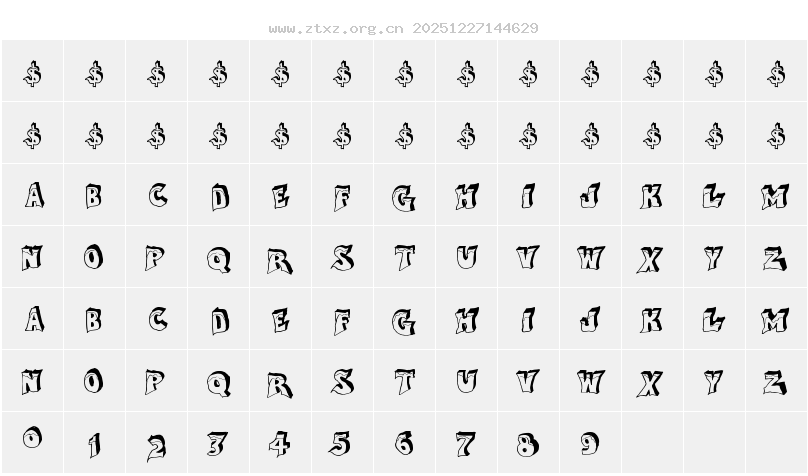 www.ztxz.org.cn 20251227144629
$ $ $ $ $ $ $ $ $ $ $ $ $
$ $ $ $ $ $ $ $ $ $ $ $ $
A B C D E F G H I J K L M
N O P Q R S T U V W X Y Z
A B C D E F G H I J K L M
N O P Q R S T U V W X Y Z
0 1 2 3 4 5 6 7 8 9